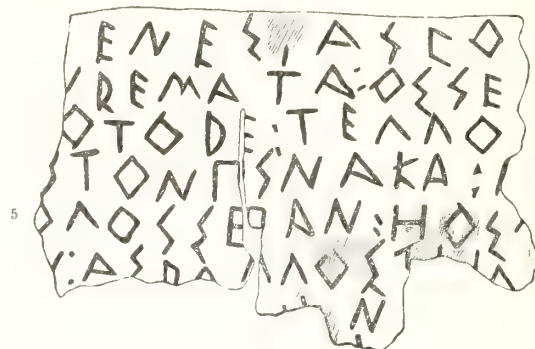 ΕΝΕΣΤΑΣΓΟ
ΡΕΜΑΤΑ:ΟΣΣΕ
ΟΤΟΔΕ:ΤΕΛΛΟ
ΤΟΝΠΙΝΑΚΑ:
5 ΟΛΟΣΣΕΟΑΝ:ΗΟΣ
:ΑΣ ΛΛΟΣ
Ν